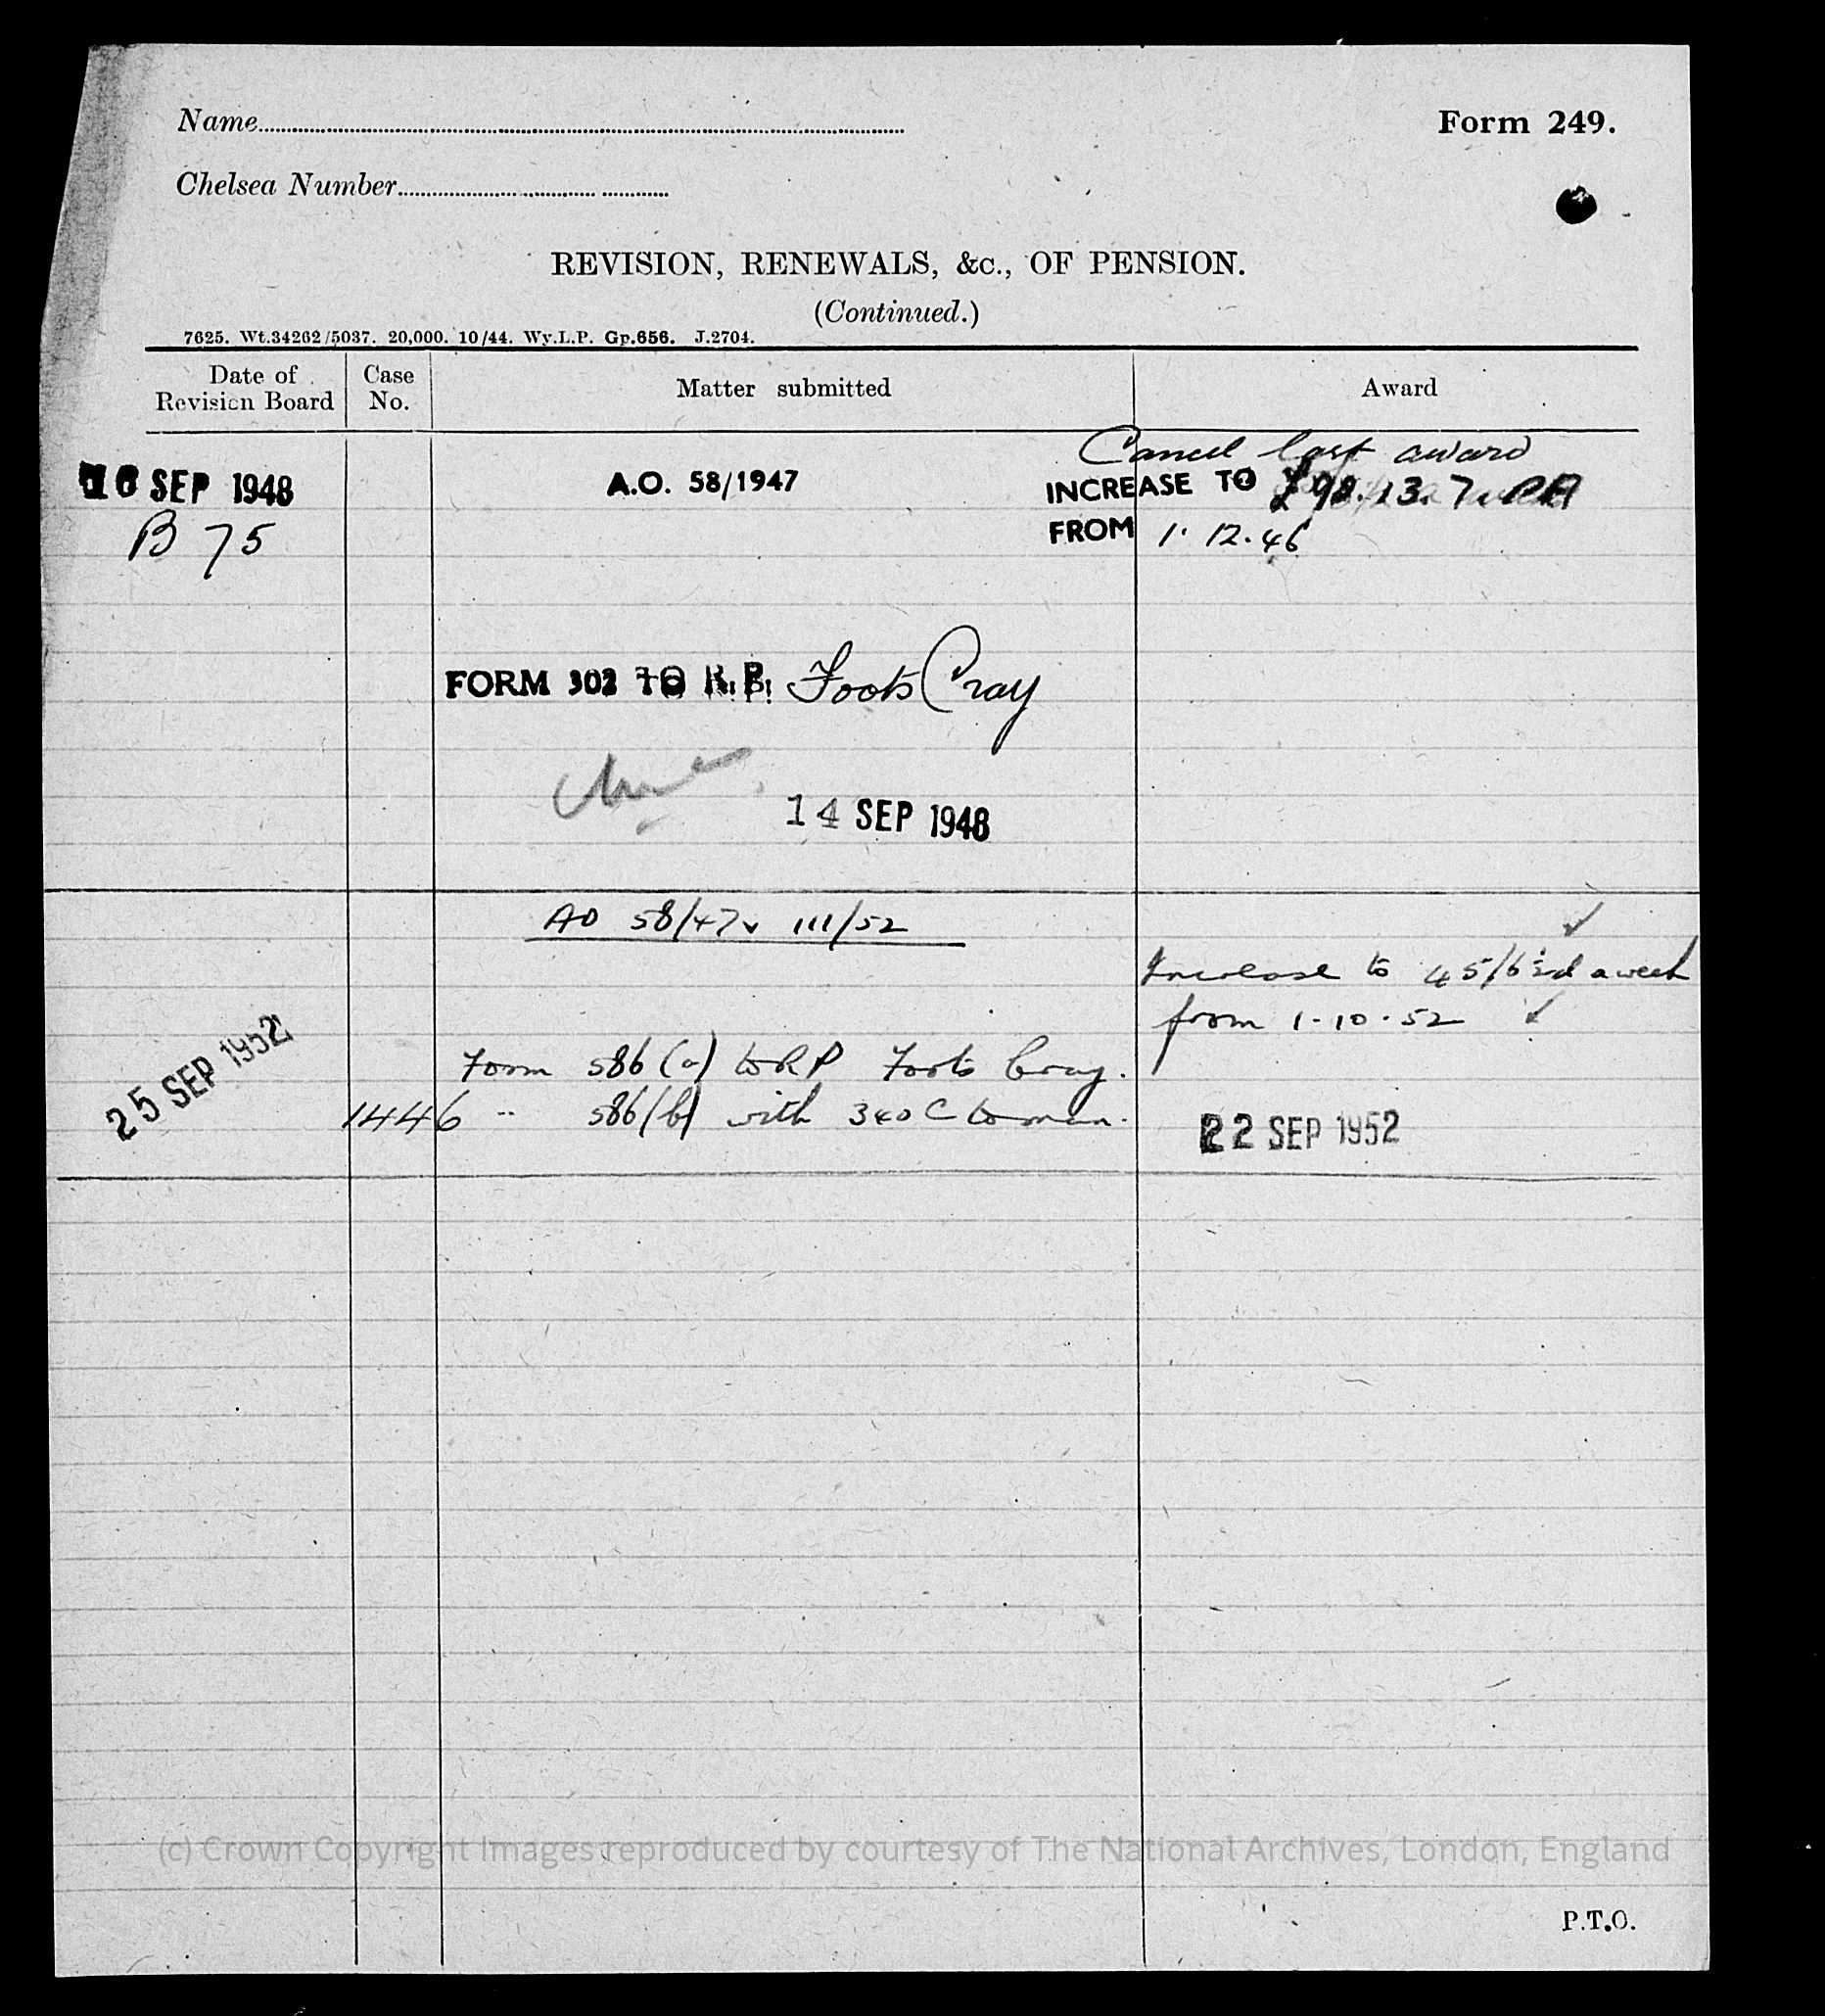 Name
Form 249.
Chelsea Number
REVISION, RENEWALS, &c., OF PENSION.
(Continued.)
7625. Wt.34262/5037. 20,000. 10/44. Wy.L.P. Gp.656. J.2704.
Date of Revision Board
Case No.
Matter submitted
Award
Cancel last award
SEP 1948
A.O. 58/1947
INCREASE TO £98.13.7. PA
B 75
FROM 1.12.46
FORM 302 TO R.P. Foots Cray
14 SEP 1948
AO 58/47 111/52
Increase to 45/6 a week
from 1-10-52
25 SEP 1952
Form 586(a) to RP Foots Cray.
1446 " 586(b) with 340C to man.
22 SEP 1952
(c) Crown Copyright Images reproduced by courtesy of The National Archives, London, England
P.T.O.